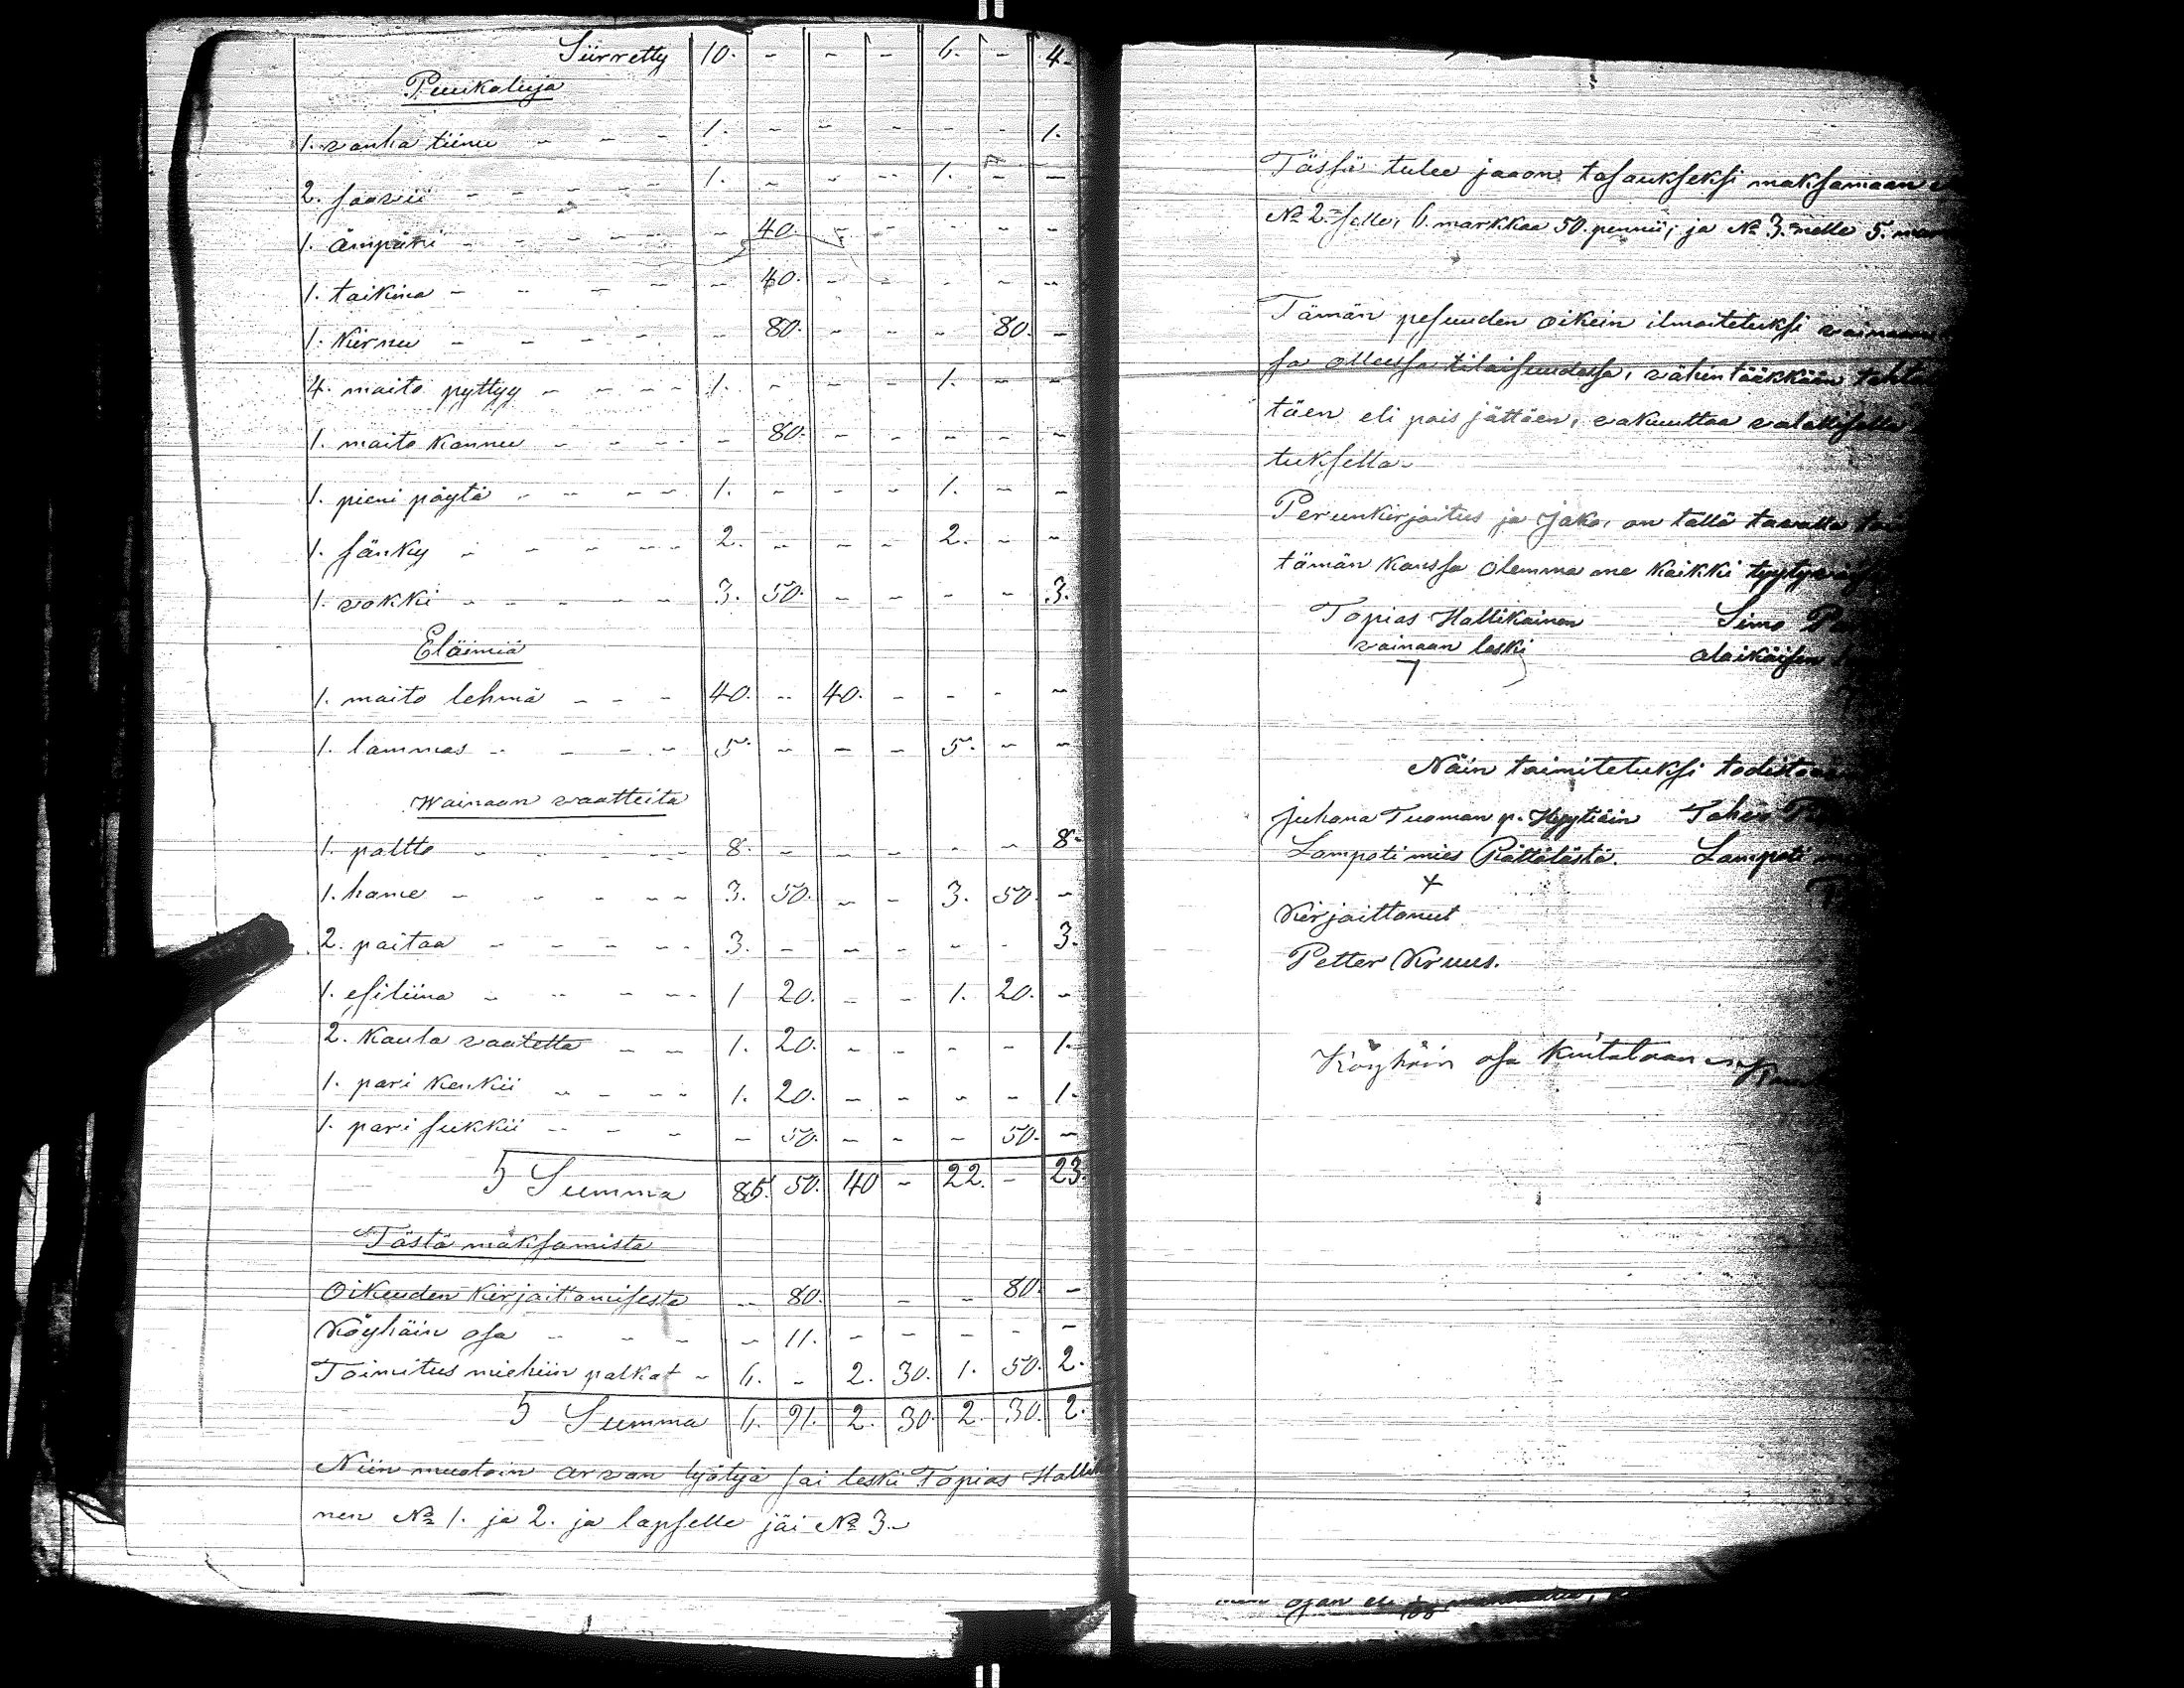 Siirretty 10. - - - 6. - 4.
Puukaluja
1. vanha tiinu - - - 1. - - - - - 1.
2. saavii - - - - - 1. - - - 1. - -
1. ämpäri - - - - - - 40. - - - - -
1. taikina - - - - - 40. - - - - -
1. kirnu - - - - - - 80. - - - 80. -
4. maito pyttyy - - - - 1. - - - 1. - -
1. maito kannu - - - - - 80. - - - - -
1. pieni pöytä - - - - 1. - - - 1. - -
1. sänky - - - - - 2. - - - 2. - -
1. vokki - - - - - 3. 50. - - - - 3.
Eläimiä
1. maito lehmä - - - 40. - 40. - - - -
1. lammas - - - - 5. - - - 5. - -
Wainaan vaatteita
1. paltto - - - - - 8. - - - - - 8.
1. hame - - - - - 3. 50. - - 3. 50. -
2. paitaa - - - - - 3. - - - - - 3.
1. esiliina - - - - 1 20. - - 1. 20. -
2. kaula vaatetta - - 1. 20. - - - - 1.
1. pari kenkii - - - - 1. 20. - - - - 1.
1. pari sukkii - - - - 50. - - - 50. -
Summa 85. 50. 40 - 22. - 23.
Tästä maksamista
Oikeuden kirjaittamisesta - 80. - - 80. -
Köyhäin osa - - - - 11. - - - - -
Toimitus miehiin palkat - 6. - 2. 30. 1. 50. 2.
Summa 6. 91. 2. 30. 2. 30. 2.
Niin muotoin arvan lyötyä sai leski Topias Halli
nen № 1. ja 2. ja lapselle jäi № 3.
Tässä tulee jaaon tasaukseksi maksamaan
№ 2:selle, 6. markkaa 50. pennii, ja № 3.melle 5.
Tämän pesuuden oikein ilmoitetuksi vainaan
sa ollessa tilaisuudessa, vähintääkkään
täen eli pois jättäen, vakuuttaa valallisella
tuksella.
Perunkirjoitus ja Jako, on tällä tavalla
tämän kanssa olemma me kaikki tyytyväiset
Topias Hallikainen Simo
vainaan leski alaikäisen
Näin toimitetuksi todistavat
Juhana Tuoman p. Hyytiäin
Lampoti mies Rättälästä. Lampoti
Kirjoittanut
Petter Kruus.
Köyhäin osa kuitataan
ojan eli